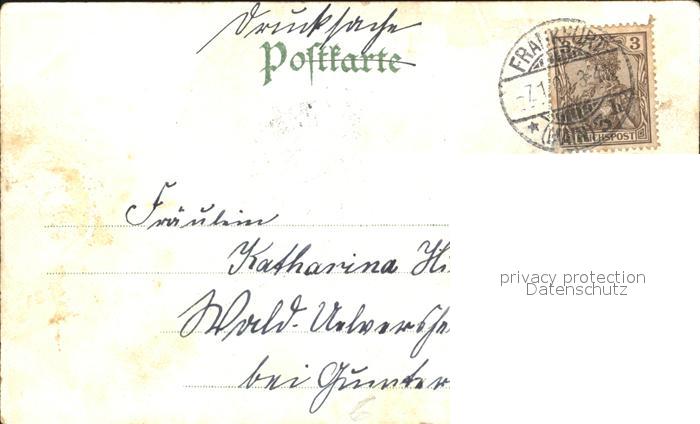 Drucksache
Postkarte
FRANKFURT
3
(MAIN)
REICHSPOST
Fräulein
Katharina Hi
Wald-Uelvershe
bei Gunter
privacy protection
Datenschutz